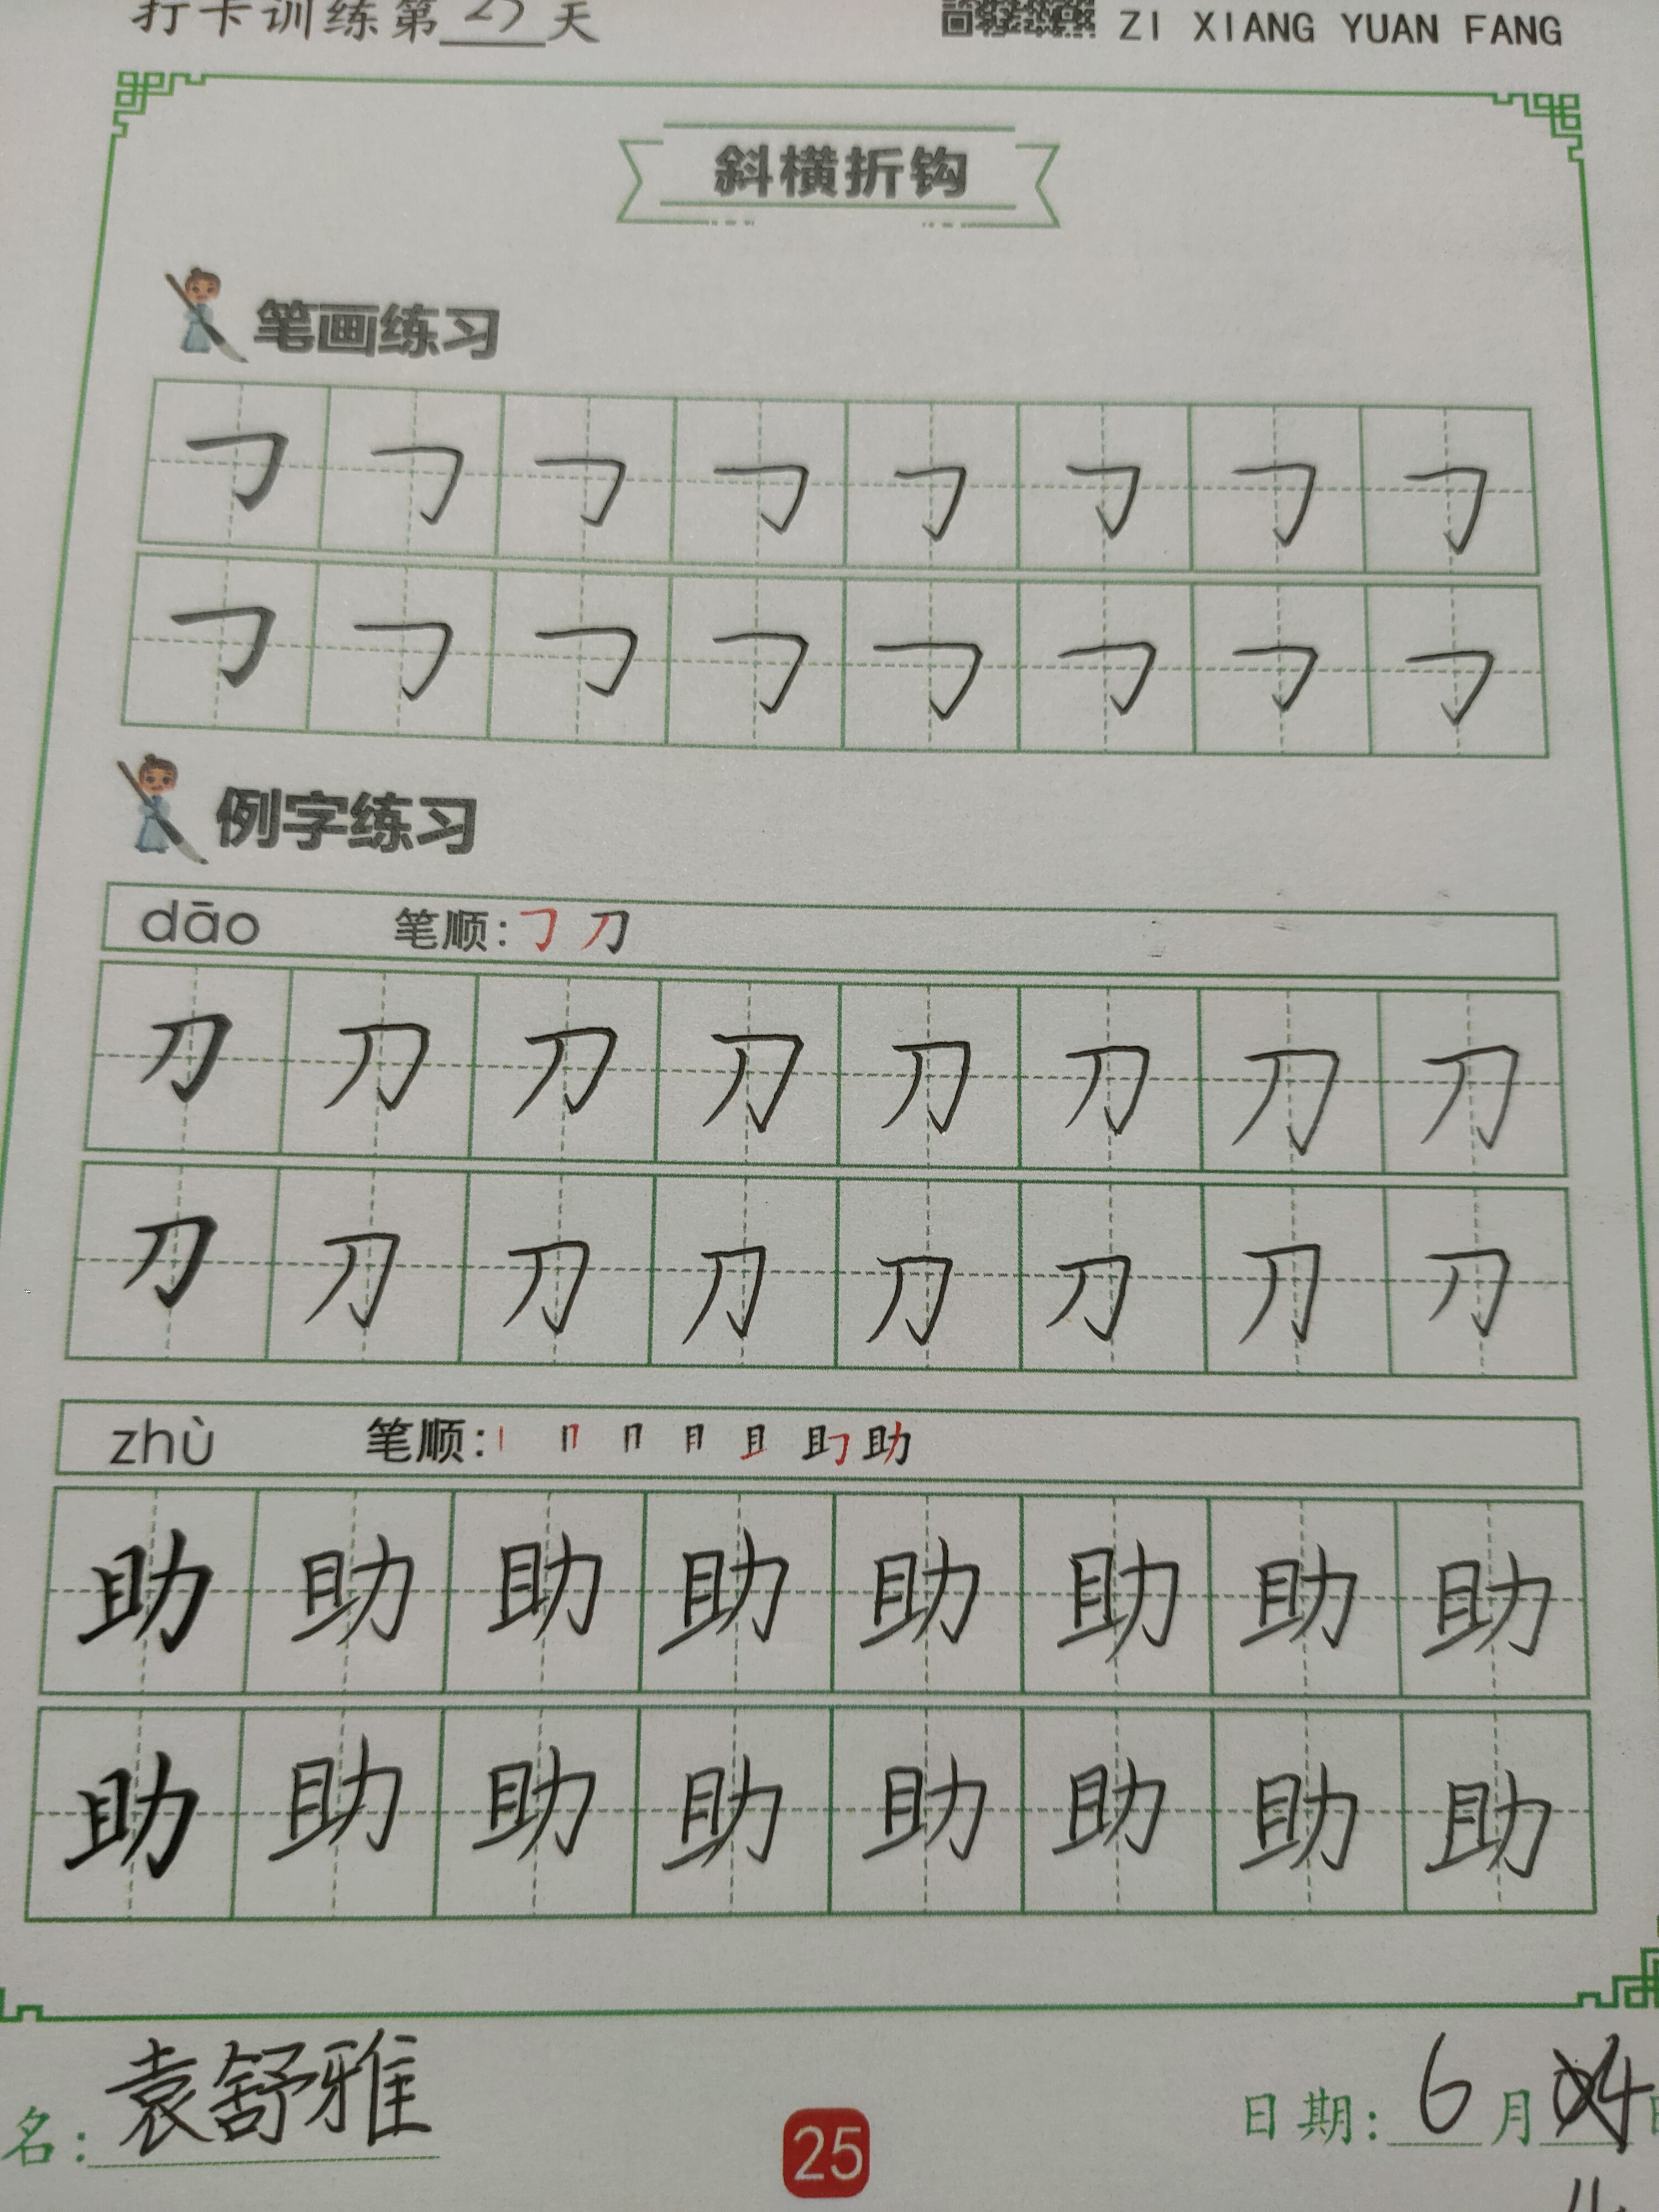 打卡训练第25天 ZI XIANG YUAN FANG
斜横折钩
笔画练习
例字练习
dāo 笔顺: 刀
刀 刀 刀 刀 刀 刀 刀 刀
刀 刀 刀 刀 刀 刀 刀 刀
zhù 笔顺: 助
助 助 助 助 助 助 助 助
助 助 助 助 助 助 助 助
名: 袁舒雅 25 日期: 6月